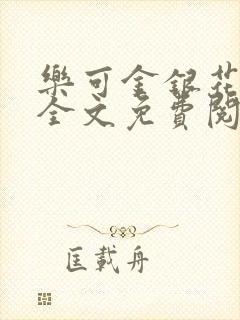 樂可金銀花
全文免費閱
匡載舟